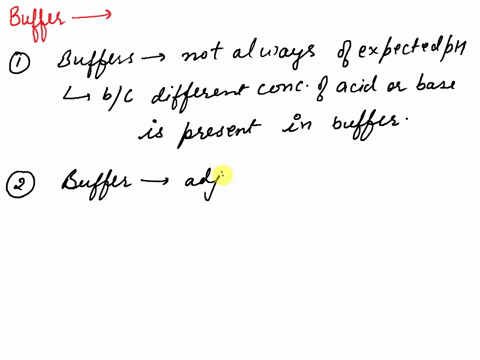 Buffer →
① Buffers → not always of expected pH
↳ b/c different conc. of acid or base
is present in buffer.
② Buffer → adj